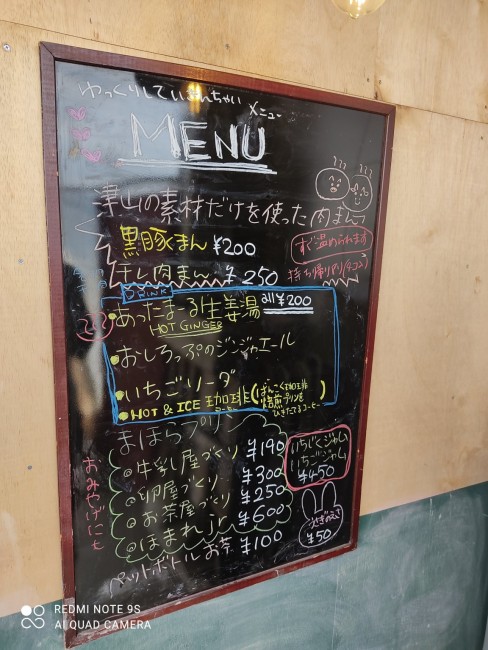 ゆっくりしていまんちゃい
メニュー
MENU
津山の素材だけを使った肉まん
黒豚まん ¥200
すぐ温められます
肉まん ¥250
持ち帰り
DRINK
あったまーる生姜湯 all ¥200
HOT GINGER
おしろっぷのジンジャエール
いちごソーダ
HOT & ICE 珈琲
まほらプリン
おみやげにも
牛乳屋づくり ¥190
卵屋づくり ¥300
お茶屋づくり ¥250
ほまれjr ¥600
ペットボトルお茶 ¥100
いちじくジャム
いちごジャム
¥450
¥50
REDMI NOTE 9S
AI QUAD CAMERA